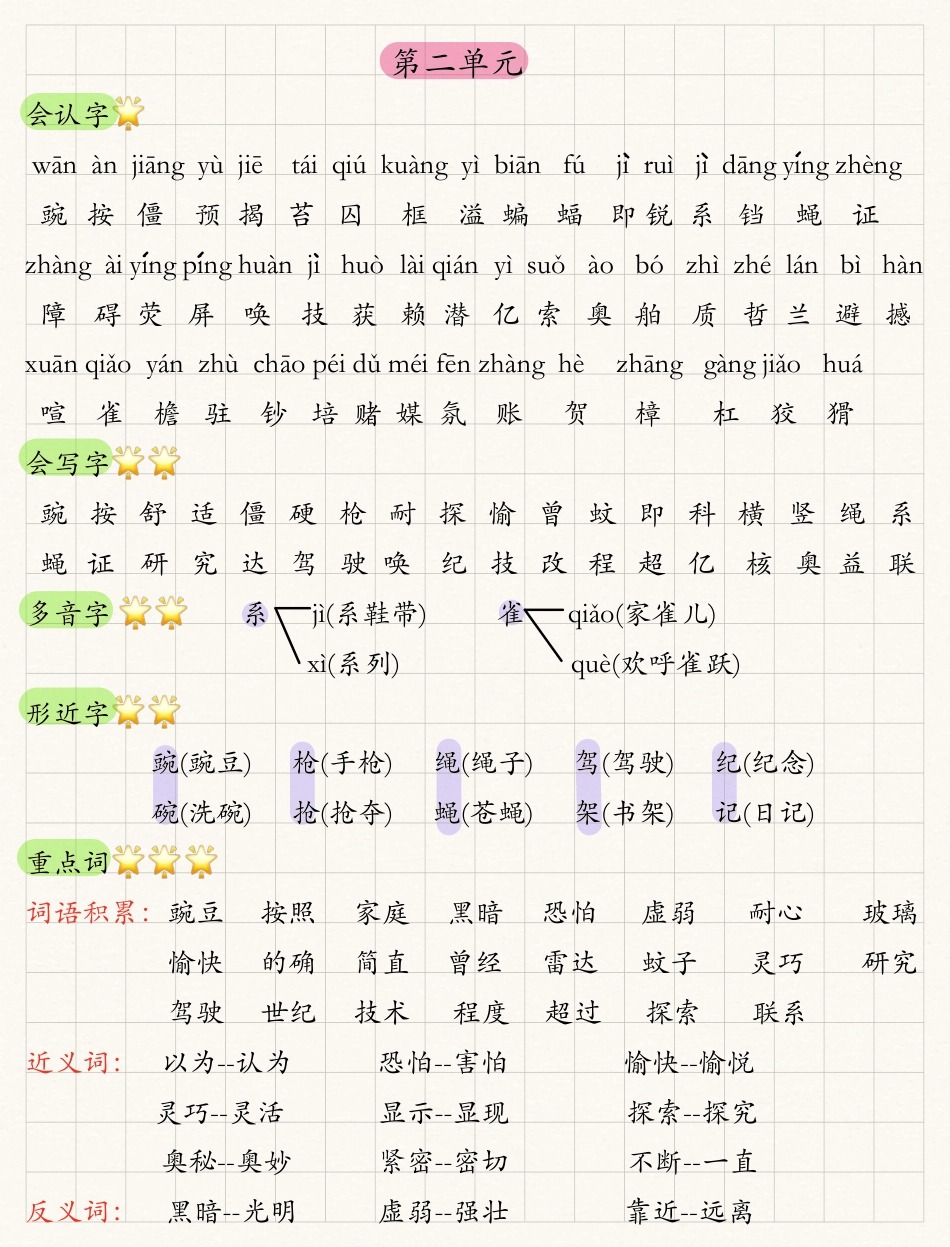 第二单元
会认字
wān àn jiāng yù jiē tái qiú kuàng yì biān fú jì ruì jì dāng yíng zhèng
豌 按 僵 预 揭 苔 囚 框 溢 蝙 蝠 即 锐 系 铛 蝇 证
zhàng ài yíng píng huàn jì huò lài qián yì suǒ ào bó zhì zhé lán bì hàn
障 碍 荧 屏 唤 技 获 赖 潜 亿 索 奥 舶 质 哲 兰 避 撼
xuān qiǎo yán zhù chāo péi dǔ méi fēn zhàng hè zhāng gàng jiǎo huá
喧 雀 檐 驻 钞 培 赌 媒 氛 账 贺 樟 杠 狡 猾
会写字
豌 按 舒 适 僵 硬 枪 耐 探 愉 曾 蚊 即 科 横 竖 绳 系
蝇 证 研 究 达 驾 驶 唤 纪 技 改 程 超 亿 核 奥 益 联
多音字 系 jì(系鞋带) 雀 qiǎo(家雀儿)
xì(系列) què(欢呼雀跃)
形近字
豌(豌豆) 枪(手枪) 绳(绳子) 驾(驾驶) 纪(纪念)
碗(洗碗) 抢(抢夺) 蝇(苍蝇) 架(书架) 记(日记)
重点词
词语积累： 豌豆 按照 家庭 黑暗 恐怕 虚弱 耐心 玻璃
愉快 的确 简直 曾经 雷达 蚊子 灵巧 研究
驾驶 世纪 技术 程度 超过 探索 联系
近义词： 以为--认为 恐怕--害怕 愉快--愉悦
灵巧--灵活 显示--显现 探索--探究
奥秘--奥妙 紧密--密切 不断--一直
反义词： 黑暗--光明 虚弱--强壮 靠近--远离